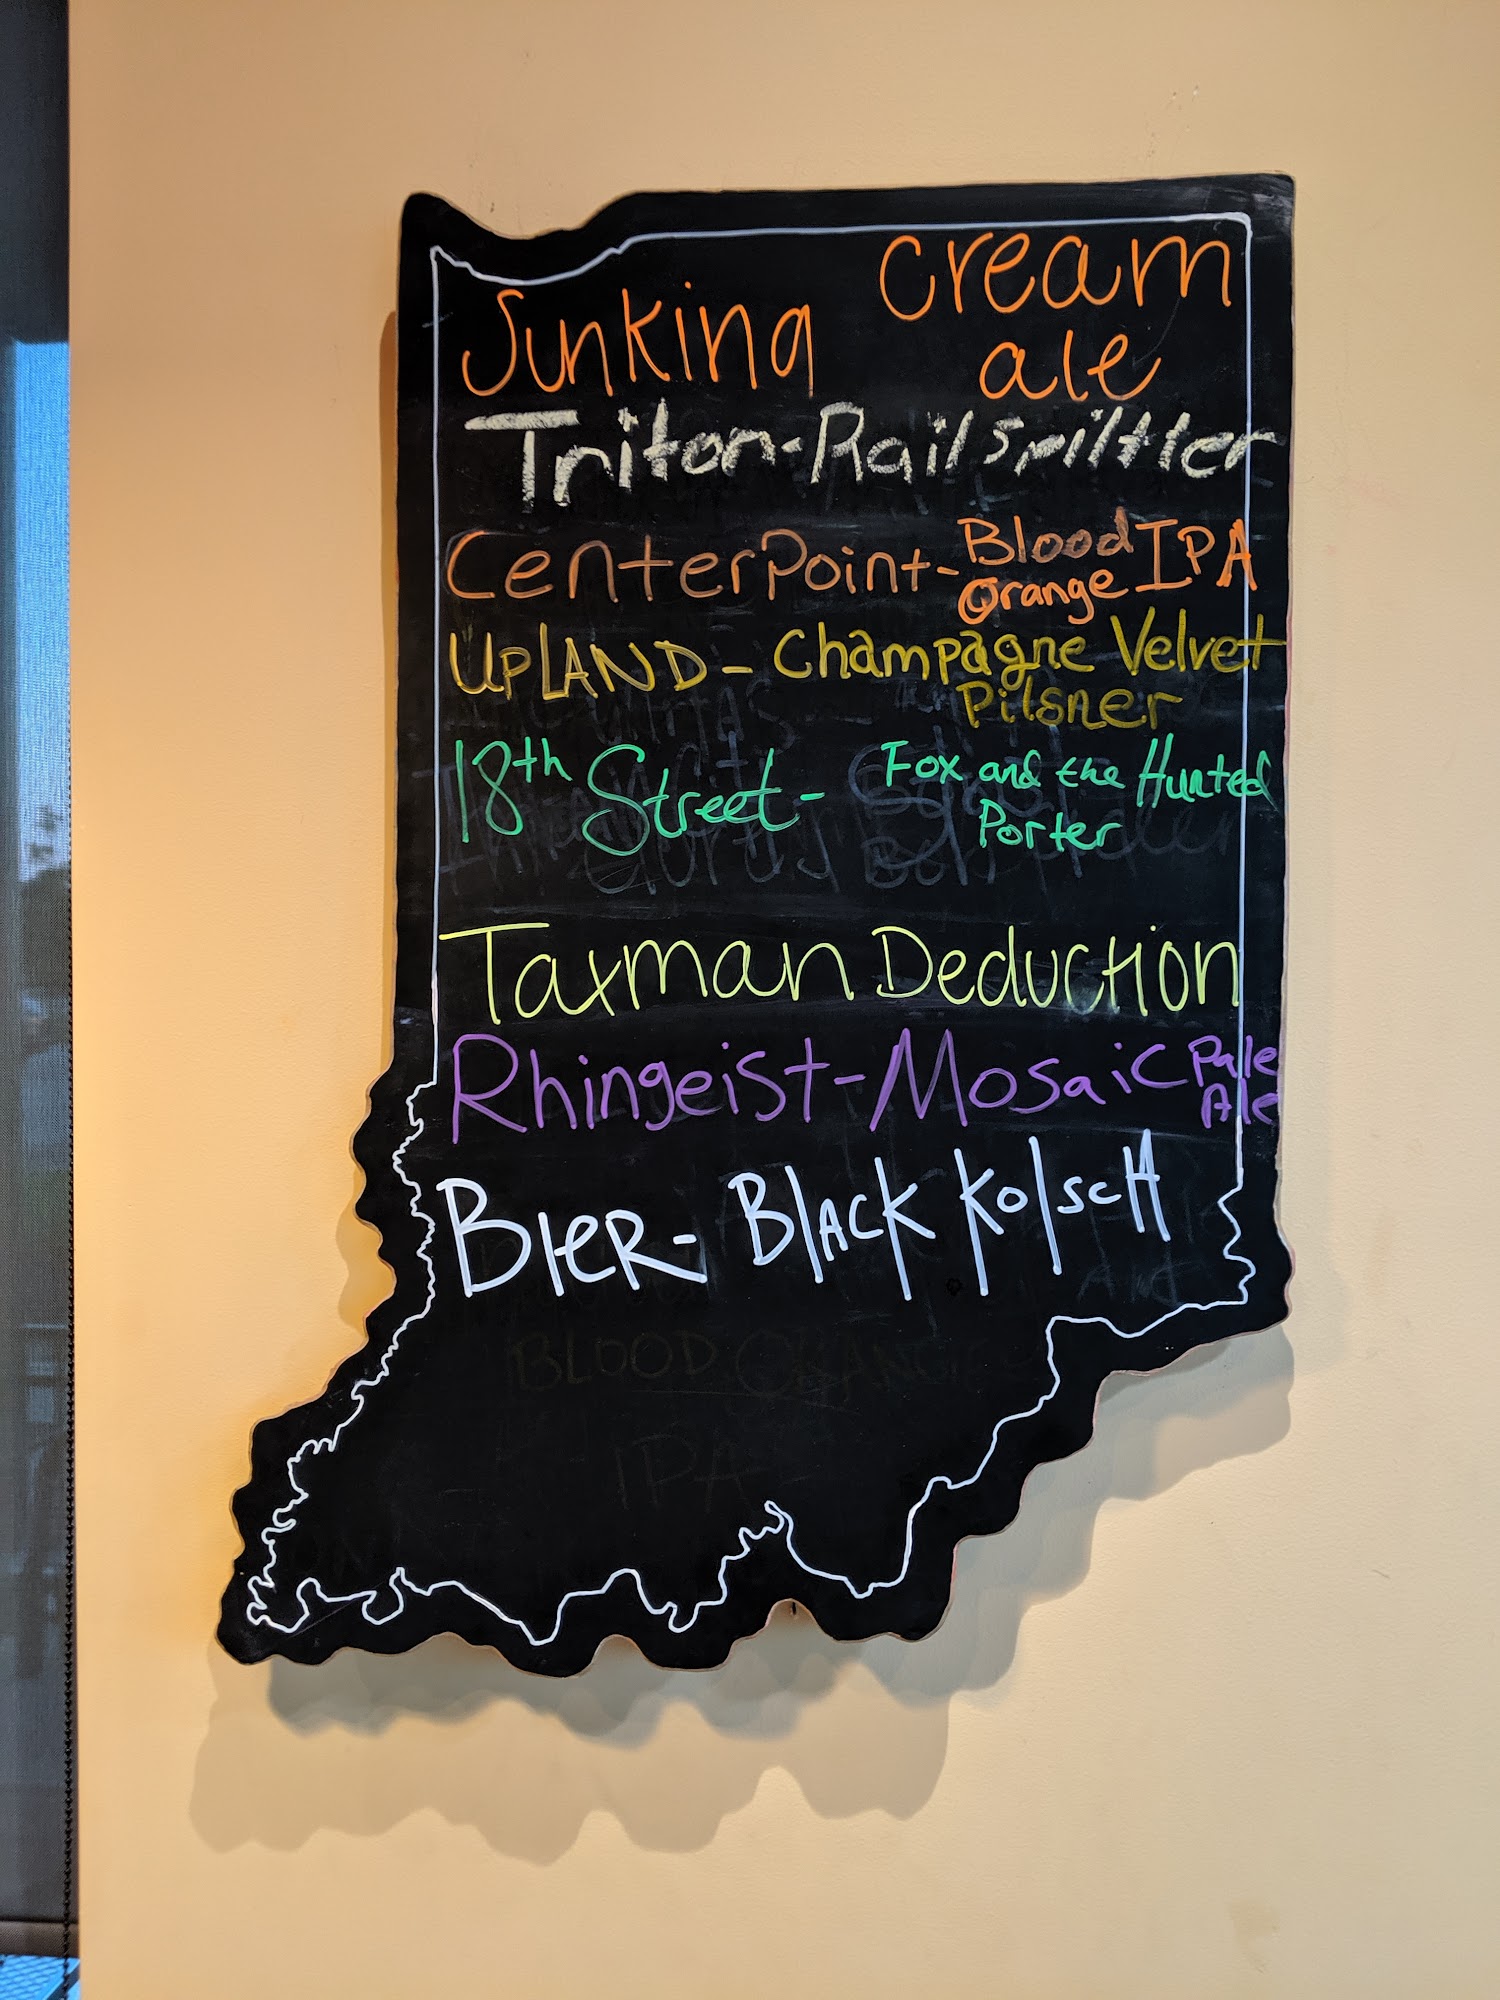 Sunking cream
ale
Triton-Railspiltter
CenterPoint-Blood Orange IPA
UpLAND-Champagne Velvet
Pilsner
18th Street- Fox and the Hunted
Porter
Taxman Deduction
Rhingeist-Mosaic Pale Ale
BIeR-BLACK KolscH
BLOOD ORANGE
IPA